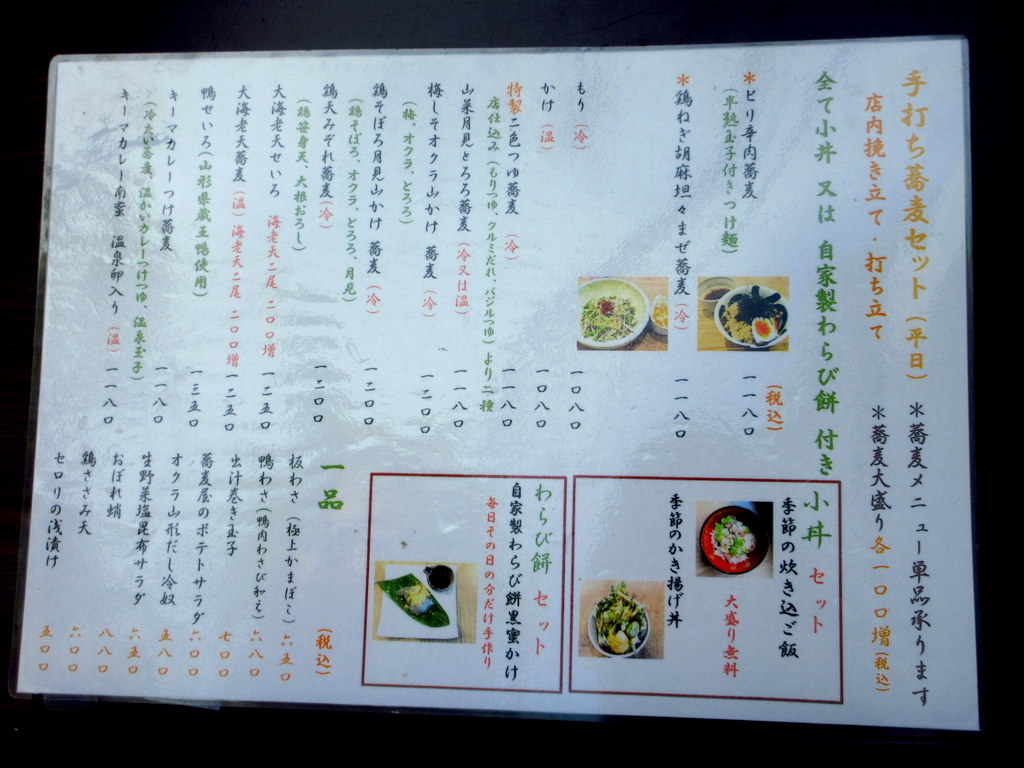 手打ち蕎麦セット(平日)
*蕎麦メニュー単品承ります
店内挽き立て・打ち立て
*蕎麦大盛り各一〇〇増(税込)
全て小丼 又は 自家製わらび餅 付き
(税込)
*ピリ辛肉蕎麦 一一八〇
(半熟玉子付きつけ麺)
*鶏ねぎ胡麻坦々まぜ蕎麦(冷) 一一八〇
もり(冷) 一〇八〇
かけ(温) 一〇八〇
特製二色つゆ蕎麦(冷) 一一八〇
店仕込み(もりつゆ、クルミだれ、バジルつゆ)より二種
山菜月見とろろ蕎麦(冷又は温) 一一八〇
梅しそオクラ山かけ 蕎麦(冷) 一二〇〇
(梅、オクラ、とろろ)
鶏そぼろ月見山かけ 蕎麦(冷) 一二〇〇
(鶏そぼろ、オクラ、とろろ、月見)
鶏天みぞれ蕎麦(冷) 一二〇〇
(鶏笹身天、大根おろし)
大海老天せいろ 海老天二尾 二〇〇増 一二五〇
大海老天蕎麦(温)海老天二尾 二〇〇増 一二五〇
鴨せいろ(山形県蔵王鴨使用) 一三五〇
キーマカレーつけ蕎麦 一一八〇
(冷たい蕎麦、温かいカレーつけつゆ、温泉玉子)
キーマカレー南蛮 温泉卵入り(温) 一一八〇
小丼 セット
季節の炊き込ご飯
大盛り無料
季節のかき揚げ丼
わらび餅 セット
自家製わらび餅黒蜜かけ
毎日その日の分だけ手作り
一品
(税込)
板わさ(極上かまぼこ) 六五〇
鴨わさ(鴨肉わさび和え) 六八〇
出汁巻き玉子 七〇〇
蕎麦屋のポテトサラダ 六〇〇
オクラ山形だし冷奴 五八〇
生野菜塩昆布サラダ 六五〇
おぼれ蛸 八八〇
鶏ささみ天 六〇〇
セロリの浅漬け 五〇〇